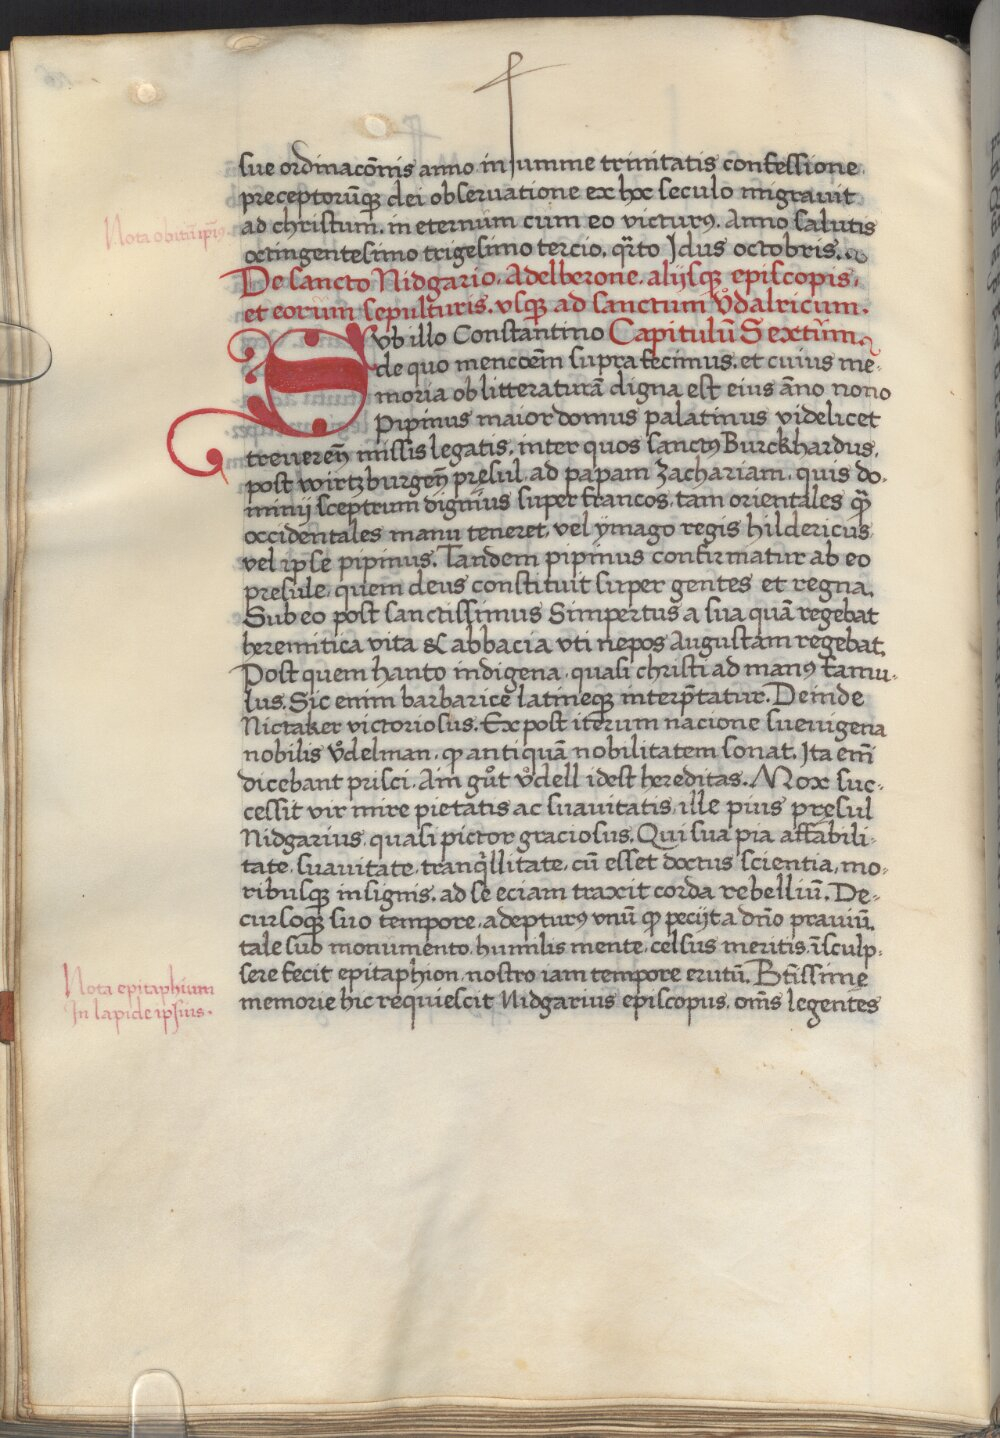 sue ordinacōnis anno in summe trinitatis confessione
preceptorūqꝫ dei observatione ex hoc seculo migravit
ad christum. in eternum cum eo victurꝰ. Anno salutis
Nota obitū ipsiꝰ.
octingentesimo trigesimo tercio. qrto Idus octobris.
De sancto Nidgario. Adelberone. alijsqꝫ episcopis.
et eorum sepulturis. vsqꝫ ad sanctum vͦdalricum.
Svb illo Constantino Capitulū Sextum
de quo mencōem supra fecimus. et cuius me-
moria ob litteraturā digna est eius āno nono
Pipinus maior domus palatinus videlicet
treuereñ missis legatis. inter quos sanctꝰ Burckhardus.
post wirtzburgeñ pręsul. ad papam Zachariam. quis do-
minij sceptrum dignius super francos. tam orientales qꝫ
occidentales manu teneret. vel ymago regis hildericus
vel ipse pipinus. Tandem pipinus confirmatur ab eo
presule. quem deus constituit super gentes et regna.
Sub eo post sanctissimus Simpertus a sua quā regebat
heremitica vita & abbacia vti nepos Augustam regebat.
Post quem hanto indigena. quasi christi ad manꝰ famu-
lus. Sic enim barbarice latineqꝫ interp̄tatur. Deinde
Nictaker victoriosus. Ex post iterum nacione sueuigena
nobilis vͦdelman. qꝫ antiquā nobilitatem sonat. Ita em̄
dicebant prisci. Ain guͦt vͦdell idest hereditas. Mox suc-
cessit vir mire pietatis ac suauitatis. ille pius pręsul
Nidgarius. quasi pictor graciosus. Qui sua pia affabili-
tate. suavitate. tranqͥllitate. cū esset doctus scientia. mo-
ribusqꝫ insignis. ad se eciam traxit corda rebelliū. De-
cursoqꝫ suo tempore. adepturꝰ vnū qꝫ peciit a dn̄o praviū.
tale sub monumento. humilis mente. celsus meritis. īsculp-
sere fecit epitaphion. nostro iam tempore erutū. Btīssime
memorie hic requiescit Nidgarius episcopus. oms̄ legentes
Nota epitaphium
In lapide ipsius.